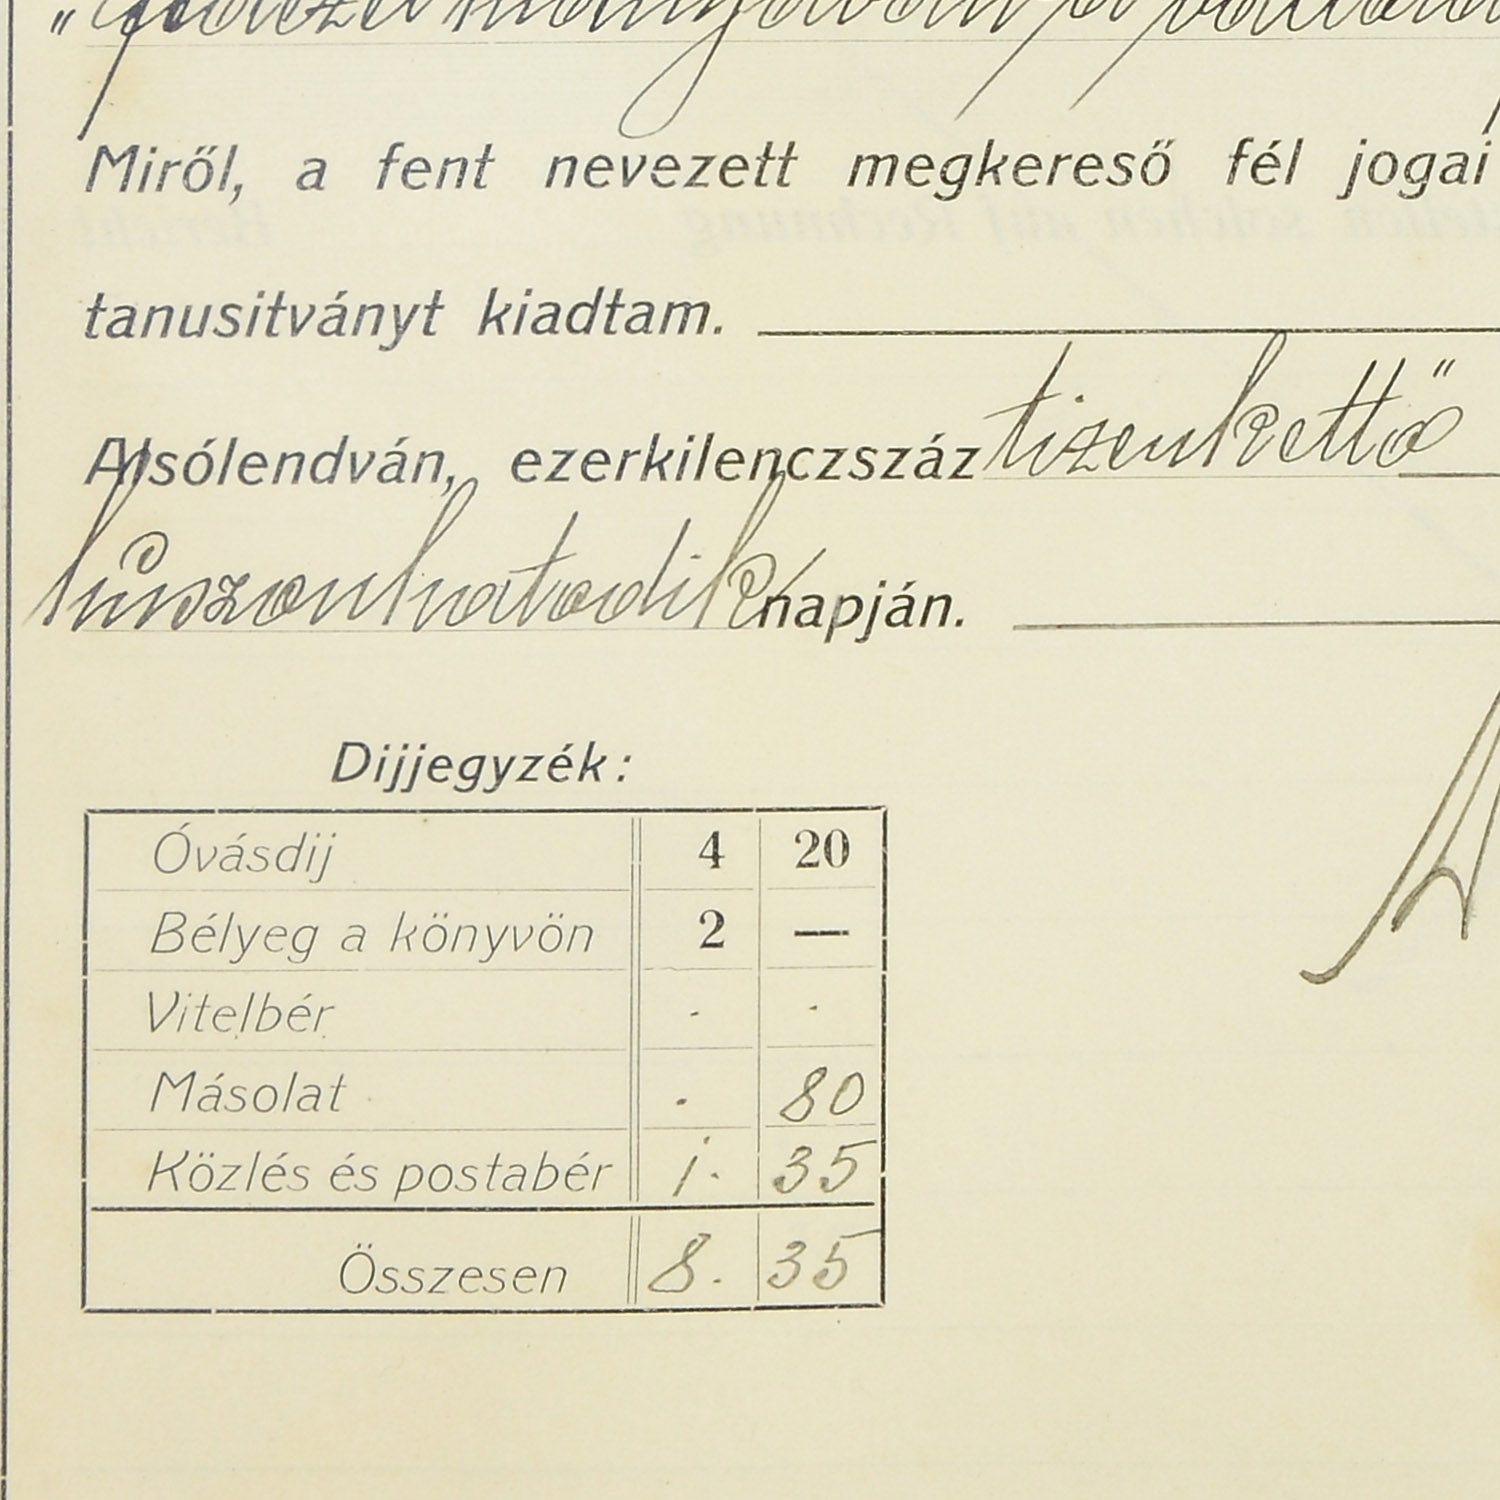 Miről, a fent nevezett megkereső fél jogai
tanusitványt kiadtam.
Alsólendván, ezerkilenczszáz tizenkettő
húszonhatodik napján.
Dijjegyzék:
Óvásdij 4 20
Bélyeg a könyvön 2 —
Vitelbér - -
Másolat . 80
Közlés és postabér 1. 35
Összesen 8. 35